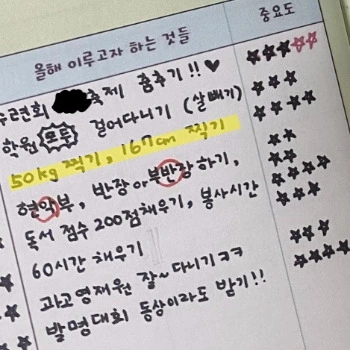 올해 이루고자 하는 것들
중요도
수련회 축제 춤추기!! ♥
학원 모두 걸어다니기 (살빼기)
50kg 찍기, 167cm 찍기
현악부, 반장 or 부반장 하기,
독서 점수 200점채우기, 봉사시간
60시간 채우기
과고영재원 잘~ 다니기ㅋㅋ
발명대회 동상이라도 받기!!